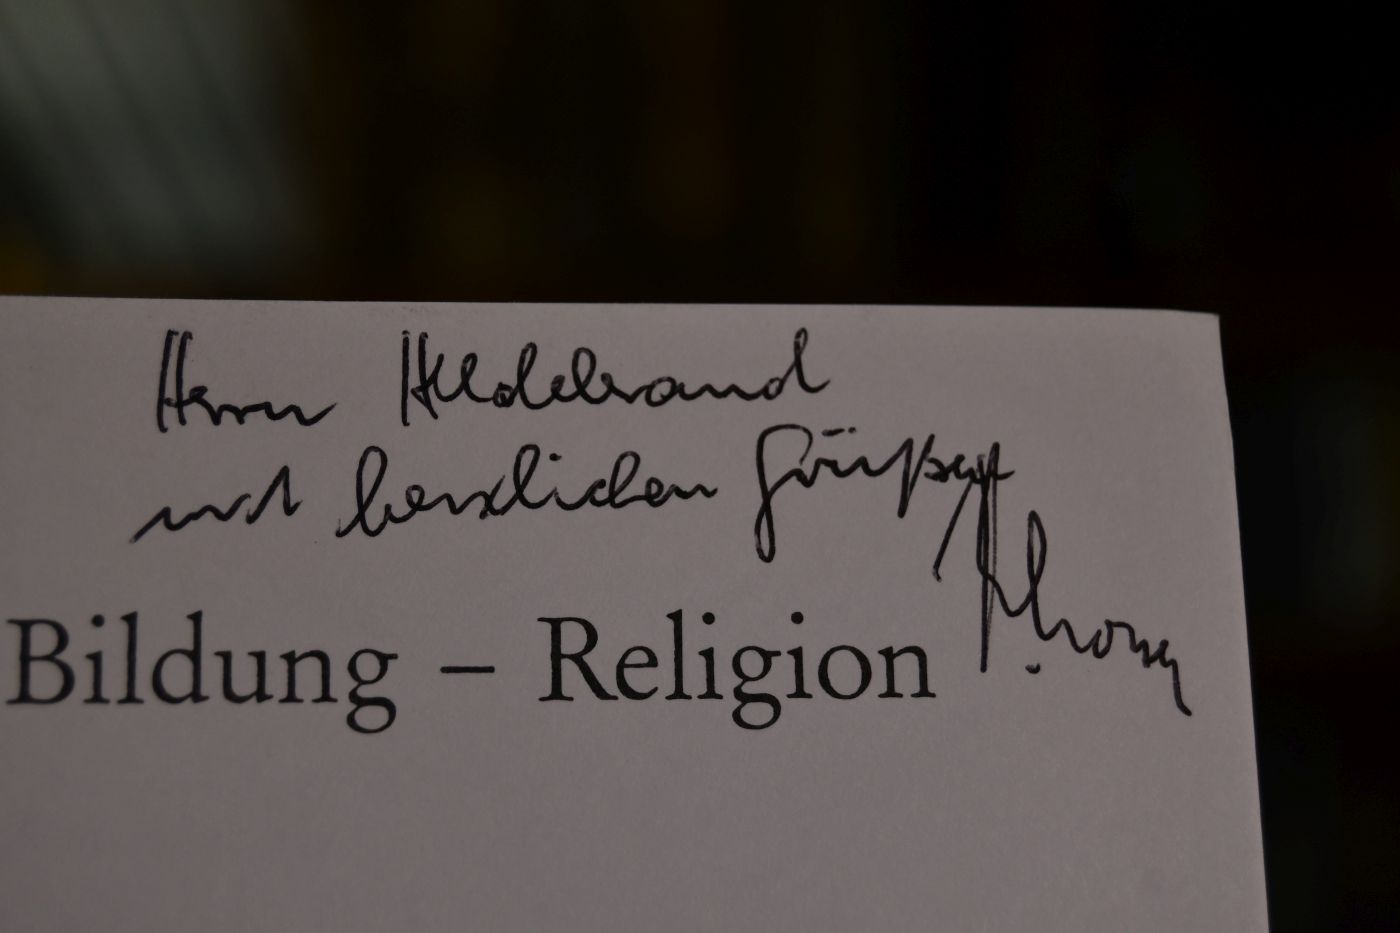 Herrn Hildebrand
mit herzlichen Grüßen
Bildung – Religion